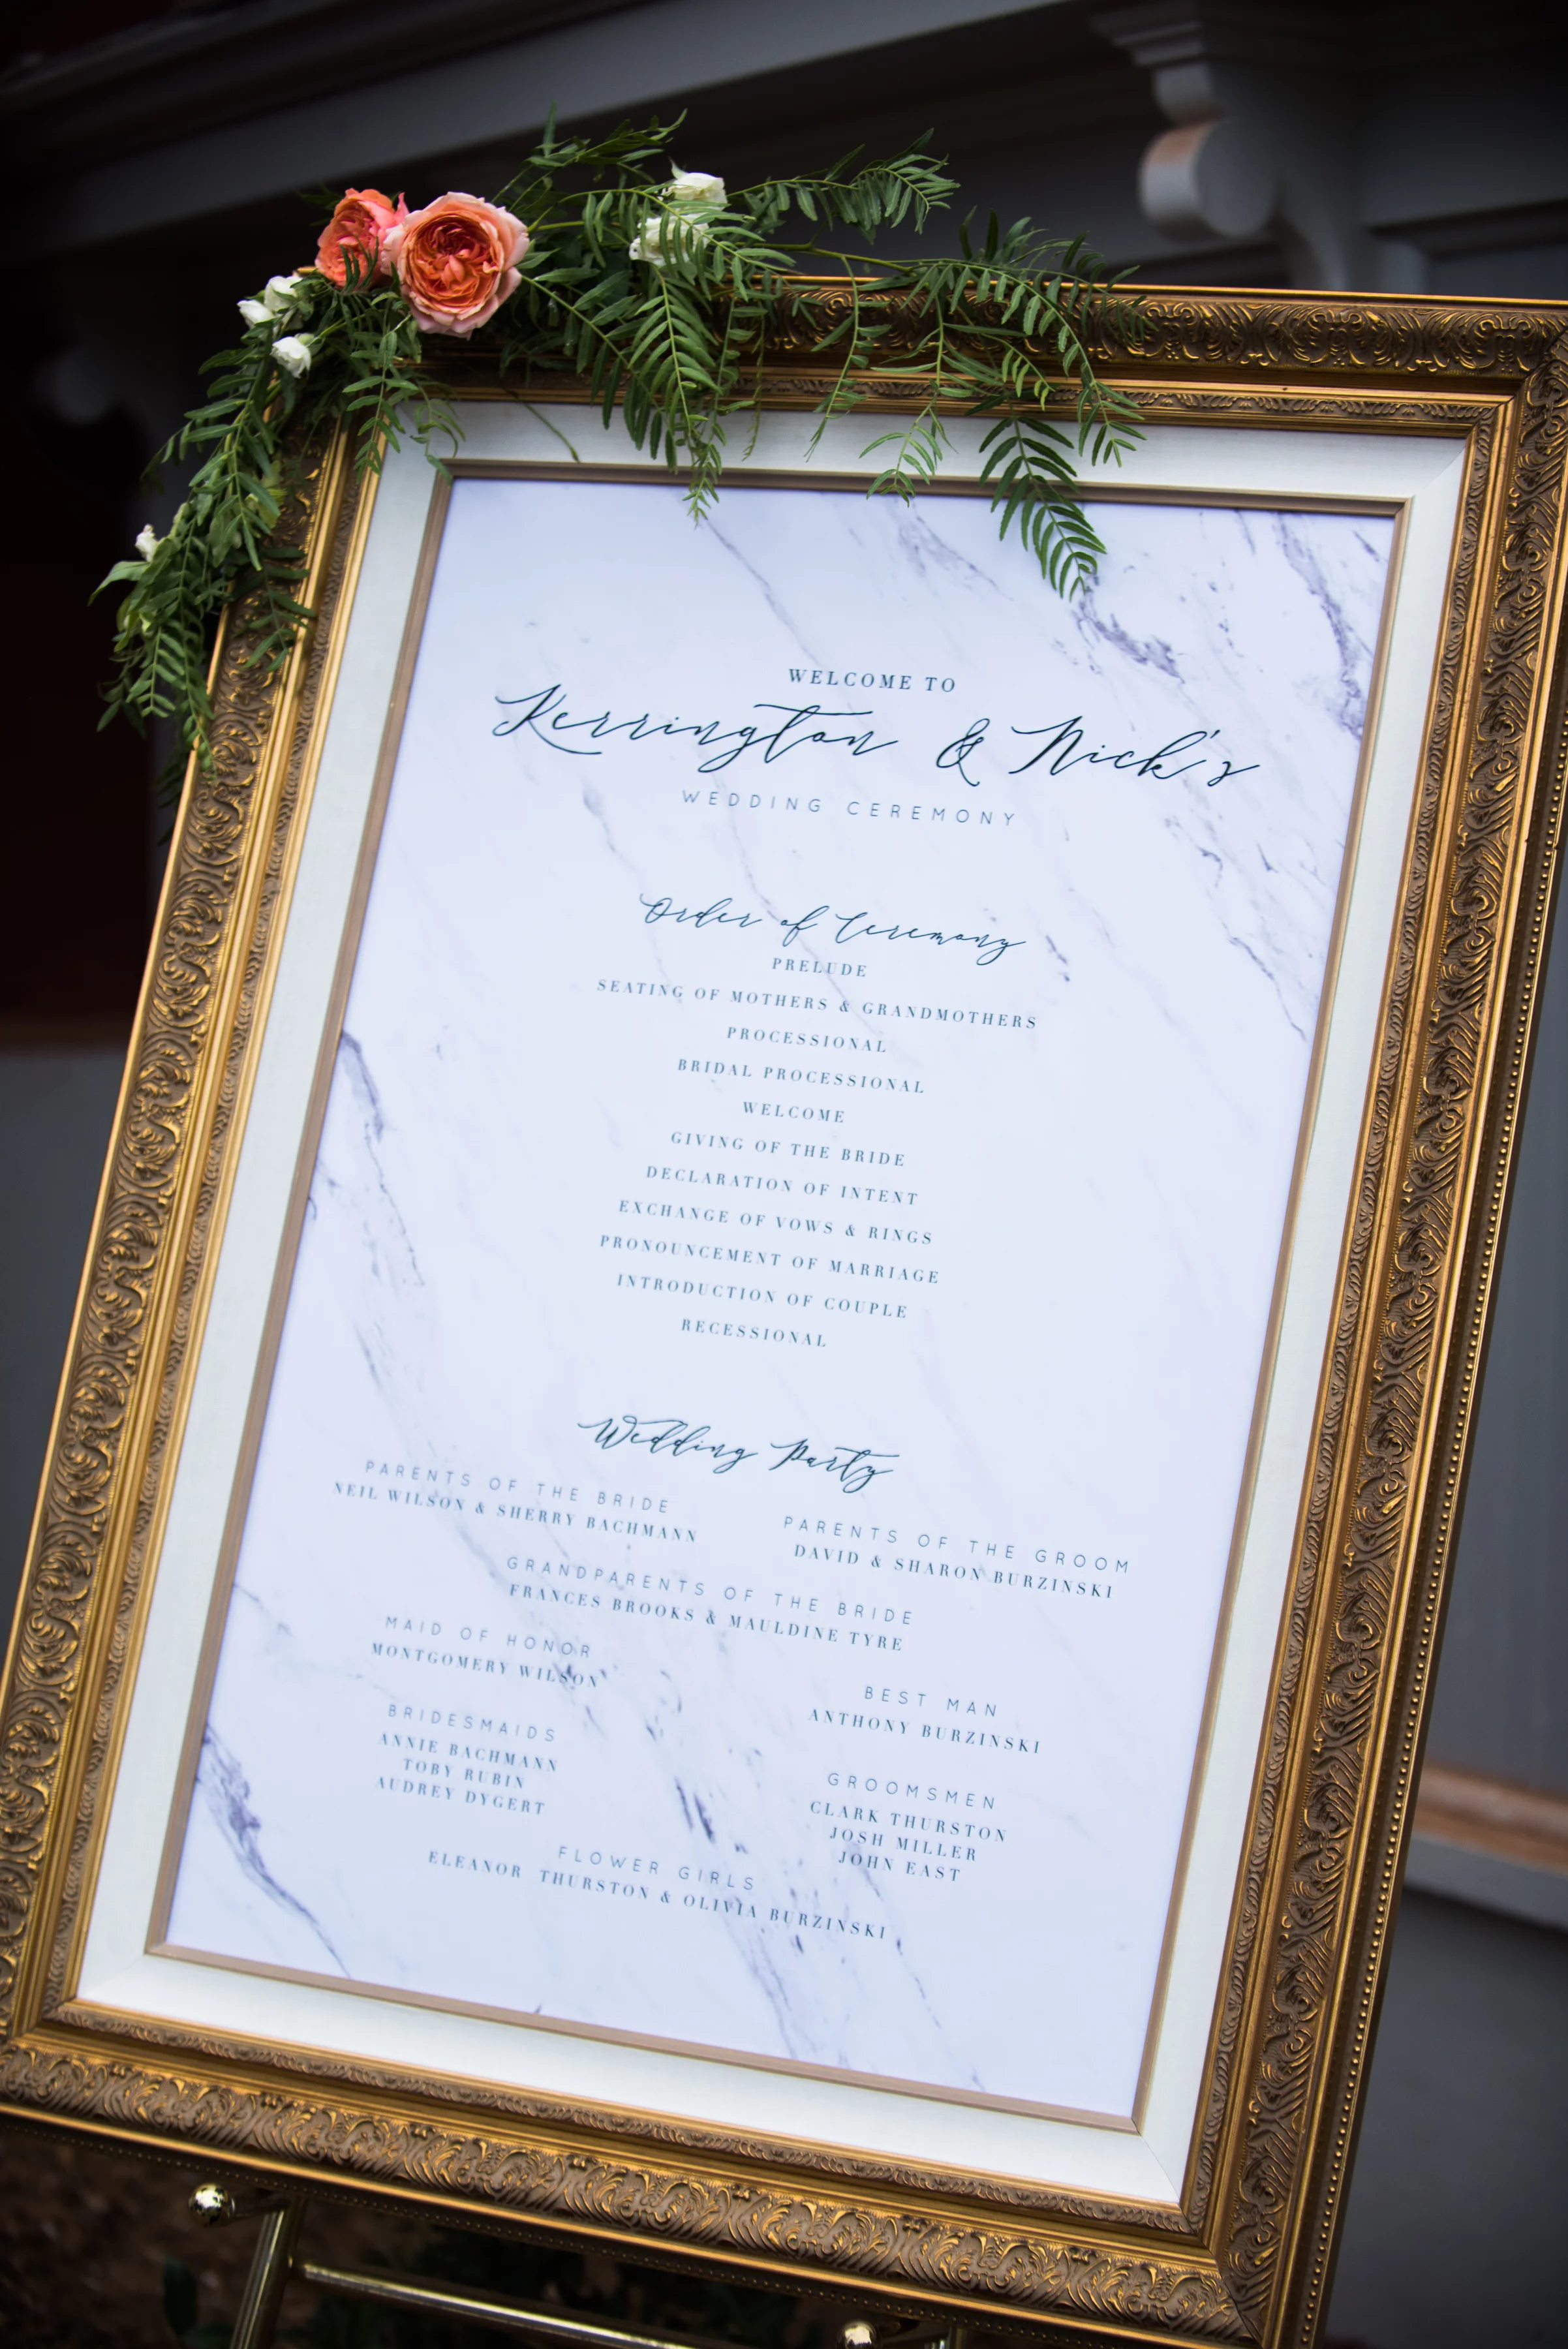 WELCOME TO
Kerrington & Nick's
WEDDING CEREMONY
Order of Ceremony
PRELUDE
SEATING OF MOTHERS & GRANDMOTHERS
PROCESSIONAL
BRIDAL PROCESSIONAL
WELCOME
GIVING OF THE BRIDE
DECLARATION OF INTENT
EXCHANGE OF VOWS & RINGS
PRONOUNCEMENT OF MARRIAGE
INTRODUCTION OF COUPLE
RECESSIONAL
Wedding Party
PARENTS OF THE BRIDE
NEIL WILSON & SHERRY BACHMANN
PARENTS OF THE GROOM
DAVID & SHARON BURZINSKI
GRANDPARENTS OF THE BRIDE
FRANCES BROOKS & MAULDINE TYRE
MAID OF HONOR
MONTGOMERY WILSON
BEST MAN
ANTHONY BURZINSKI
BRIDESMAIDS
ANNIE BACHMANN
TOBY RUBIN
AUDREY DYGERT
GROOMSMEN
CLARK THURSTON
JOSH MILLER
JOHN EAST
FLOWER GIRLS
ELEANOR THURSTON & OLIVIA BURZINSKI